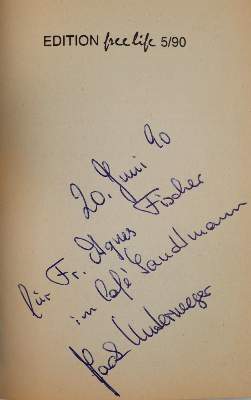 EDITION free life 5/90
20. Juni 90
für Fr. Agnes Fischer
im Café Landtmann
Jack Unterweger